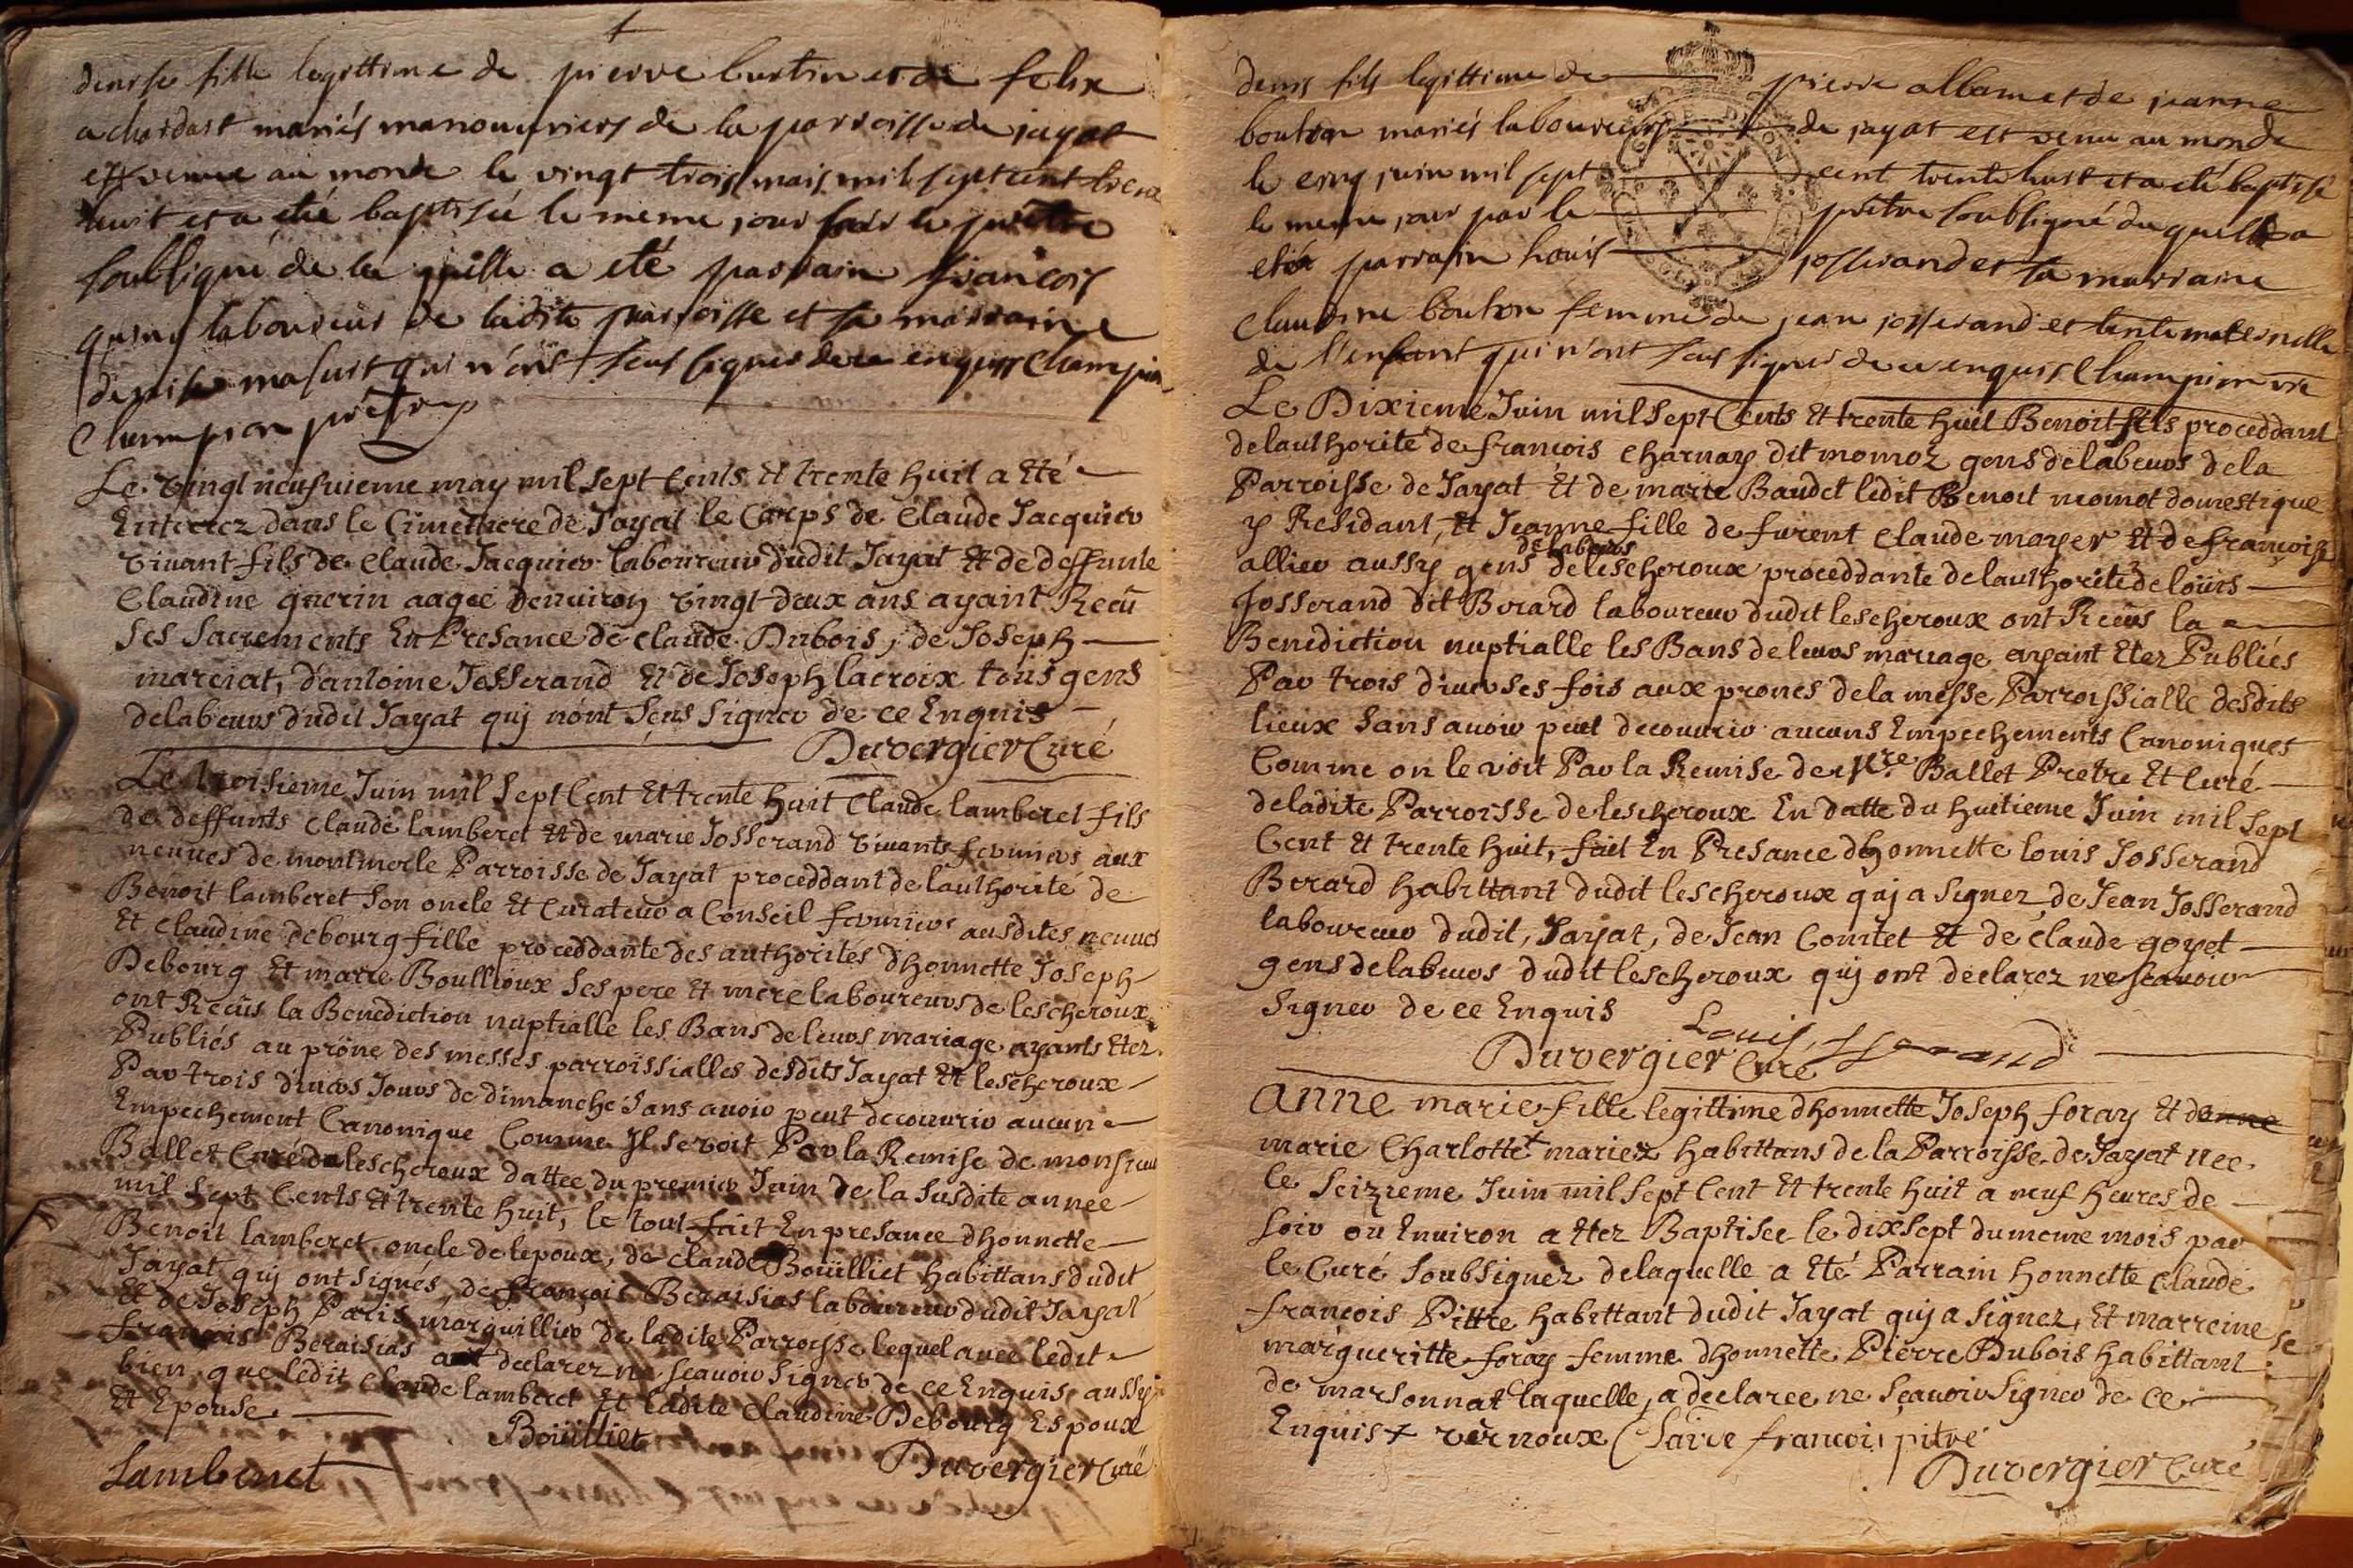 denise fille legittime de pierre burtin et de felix
mariés manouvriers de la parroisse de jayat
est venue au monde le vingt trois mais mil sept cent trente
huit et a été baptisée le meme jour par le prêtre
soubsigné de la quelle a eté parrain françois
laboureur de ladite parroisse et sa marraine
denise masuit qui n'ont sceus signer de ce enquis Champion
Champion prêtre
Le vingt neufvieme may mil sept Cents Et trente huit a Eté
Enterrez dans le Cimethiere de Jayat le Corps de Claude Jacquier
vivant fils de Claude Jacquier laboureur dudit Jayat Et de deffunte
Claudine guerin aagée denuiron vingt deux ans ayant Reçu
Ses Sacrements En Presance de Claude Dubois, de Joseph
marciat, d'antoine Josserand Et de Joseph lacroix tous gens
delabeurs dudit Jayat quj nont Sçeus Signer de ce Enquis
Duvergier Curé
Le troisieme Juin mil Sept Cent Et trente huit Claude lamberet fils
de deffunts Claude lamberet Et de marie Josserand vivants fermiers aux
neuues de montmerle Parroisse de Jayat proceddant de lauthorité de
Benoit lamberet Son oncle Et Curateur a Conseil fermier ausdites neuues
Et Claudine debourg fille proceddante des authorités dhonnette Joseph
Debourg Et marie Boullioux Ses pere Et mere laboureurs de lescheroux
ont Reçüs la Benediction nuptialle les Bans de leurs mariage ayants Etez
Publiés au prône des messes parroissialles desdits Jayat Et lescheroux
Par trois diuers Jours de dimanche Sans auoir peut decouurir aucun
Empechement Canonique Comme Jl Se voit Par la Remise de monsieur
Ballet Curé de lescheroux dattee du premier Juin de la Susdite année
mil Sept Cents Et trente huit, le tout fait En presance dhonnette
Benoit lamberet oncle de lepoux, de Claude Boüilliet habittans dudit
Jayat quj ont Signés, de françois Beraisias laboureur dudit Jayat
Et de Joseph Paris marguillier de ladite Parroisse lequel auec ledit
françois Beraisias ont declarez ne sçauoir Signer de ce Enquis aussy
bien que ledit Claude lamberet Et ladite Claudine Debourg Espoux
Et Epouse
Boüilliet
Lamberet
Duvergier Curé
denis fils legittime de pierre allame et de jeanne
bouton mariés laboureurs de jayat est venu au monde
le cinq juin mil sept cent trente huit et a eté baptisé
le meme jour par le prêtre soubsigné du quel a
eté parrain loüis josserand et sa marraine
Claudine bouton femme de jean josserand et tente maternelle
de l'enfant qui n'ont sceus signer de ce enquis Champion vic
Le Dixieme Juin mil Sept Cents Et trente huit Benoit fils proceddant
delauthorité de françois Charnay dit momoz gens delabeurs dela
Parroisse de Jayat Et de marie Baudet ledit Benoit momot domestique
y Residant, Et Jeanne fille de furent Claude mayer Et de françoise
allier aussy gens delabeurs de lescheroux proceddante delauthorité de loüis
Josserand dit Berard laboureur dudit lescheroux ont Reçus la
Benediction nuptialle les Bans de leurs mariage ayant Etez Publiés
Par trois diuerses fois aux prones dela messe Parroissialle desdits
lieux Sans auoir peut decouurir aucuns Empechements Canoniques
Comme on le voit Par la Remise de Mre Ballet Pretre Et Curé
deladite Parroisse de lescheroux En datte du huitieme Juin mil Sept
Cent Et trente huit, fait En Presance dhonnette louis Josserand
Berard habittant dudit lescheroux quj a Signez, de Jean Josserand
laboureur dudit, Jayat, de Jean Comtet Et de Claude goyet
gens delabeurs dudit lescheroux quj ont declarez ne sçauoir
Signer de ce Enquis
Louis Josserand
Duvergier Curé
Anne marie fille legittime dhonnette Joseph foray Et de
marie Charlotte + mariez habittans de la Parroisse de Jayat nee
le Seizieme Juin mil Sept Cent Et trente huit a neuf heures de
Soir ou Enuiron a Etez Baptisee le dixsept du meme mois par
le Curé Soubsignez delaquelle a Eté Parrain honnette Claude
françois Pittre habittant dudit Jayat quj a Signez, Et marreine
margueritte foray femme dhonnette Pierre Dubois habittant
de marsonnat laquelle, a declaree ne Sçauoir Signer de ce
Enquis + vernoux Claive françois pitre
Duvergier Curé